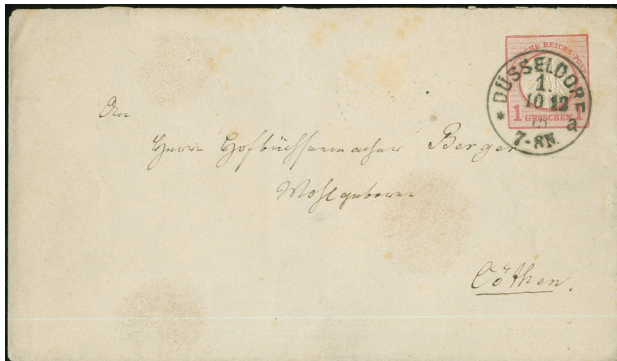 DEUTSCHE REICHS-POST
1 GROSCHEN 1
* DÜSSELDORF
1.
10 12
a
7-8N.
An
Herrn Hofbüchsenmacher Berger
Wohlgeboren
Cöthen.